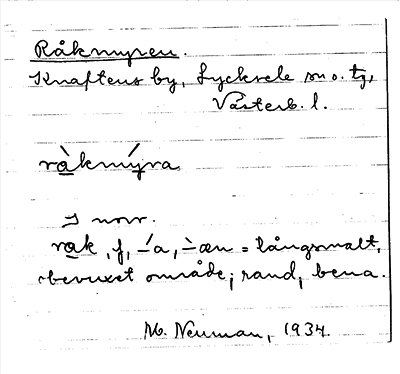 Råkmyren.
Knaftens by, Lycksele sn o. tg,
Västerb. l.
ràkmýra
I norr.
rak, f, -́a, -̀æn = långsmalt,
bevuxet område; rand, bena.
M. Neuman, 1934.